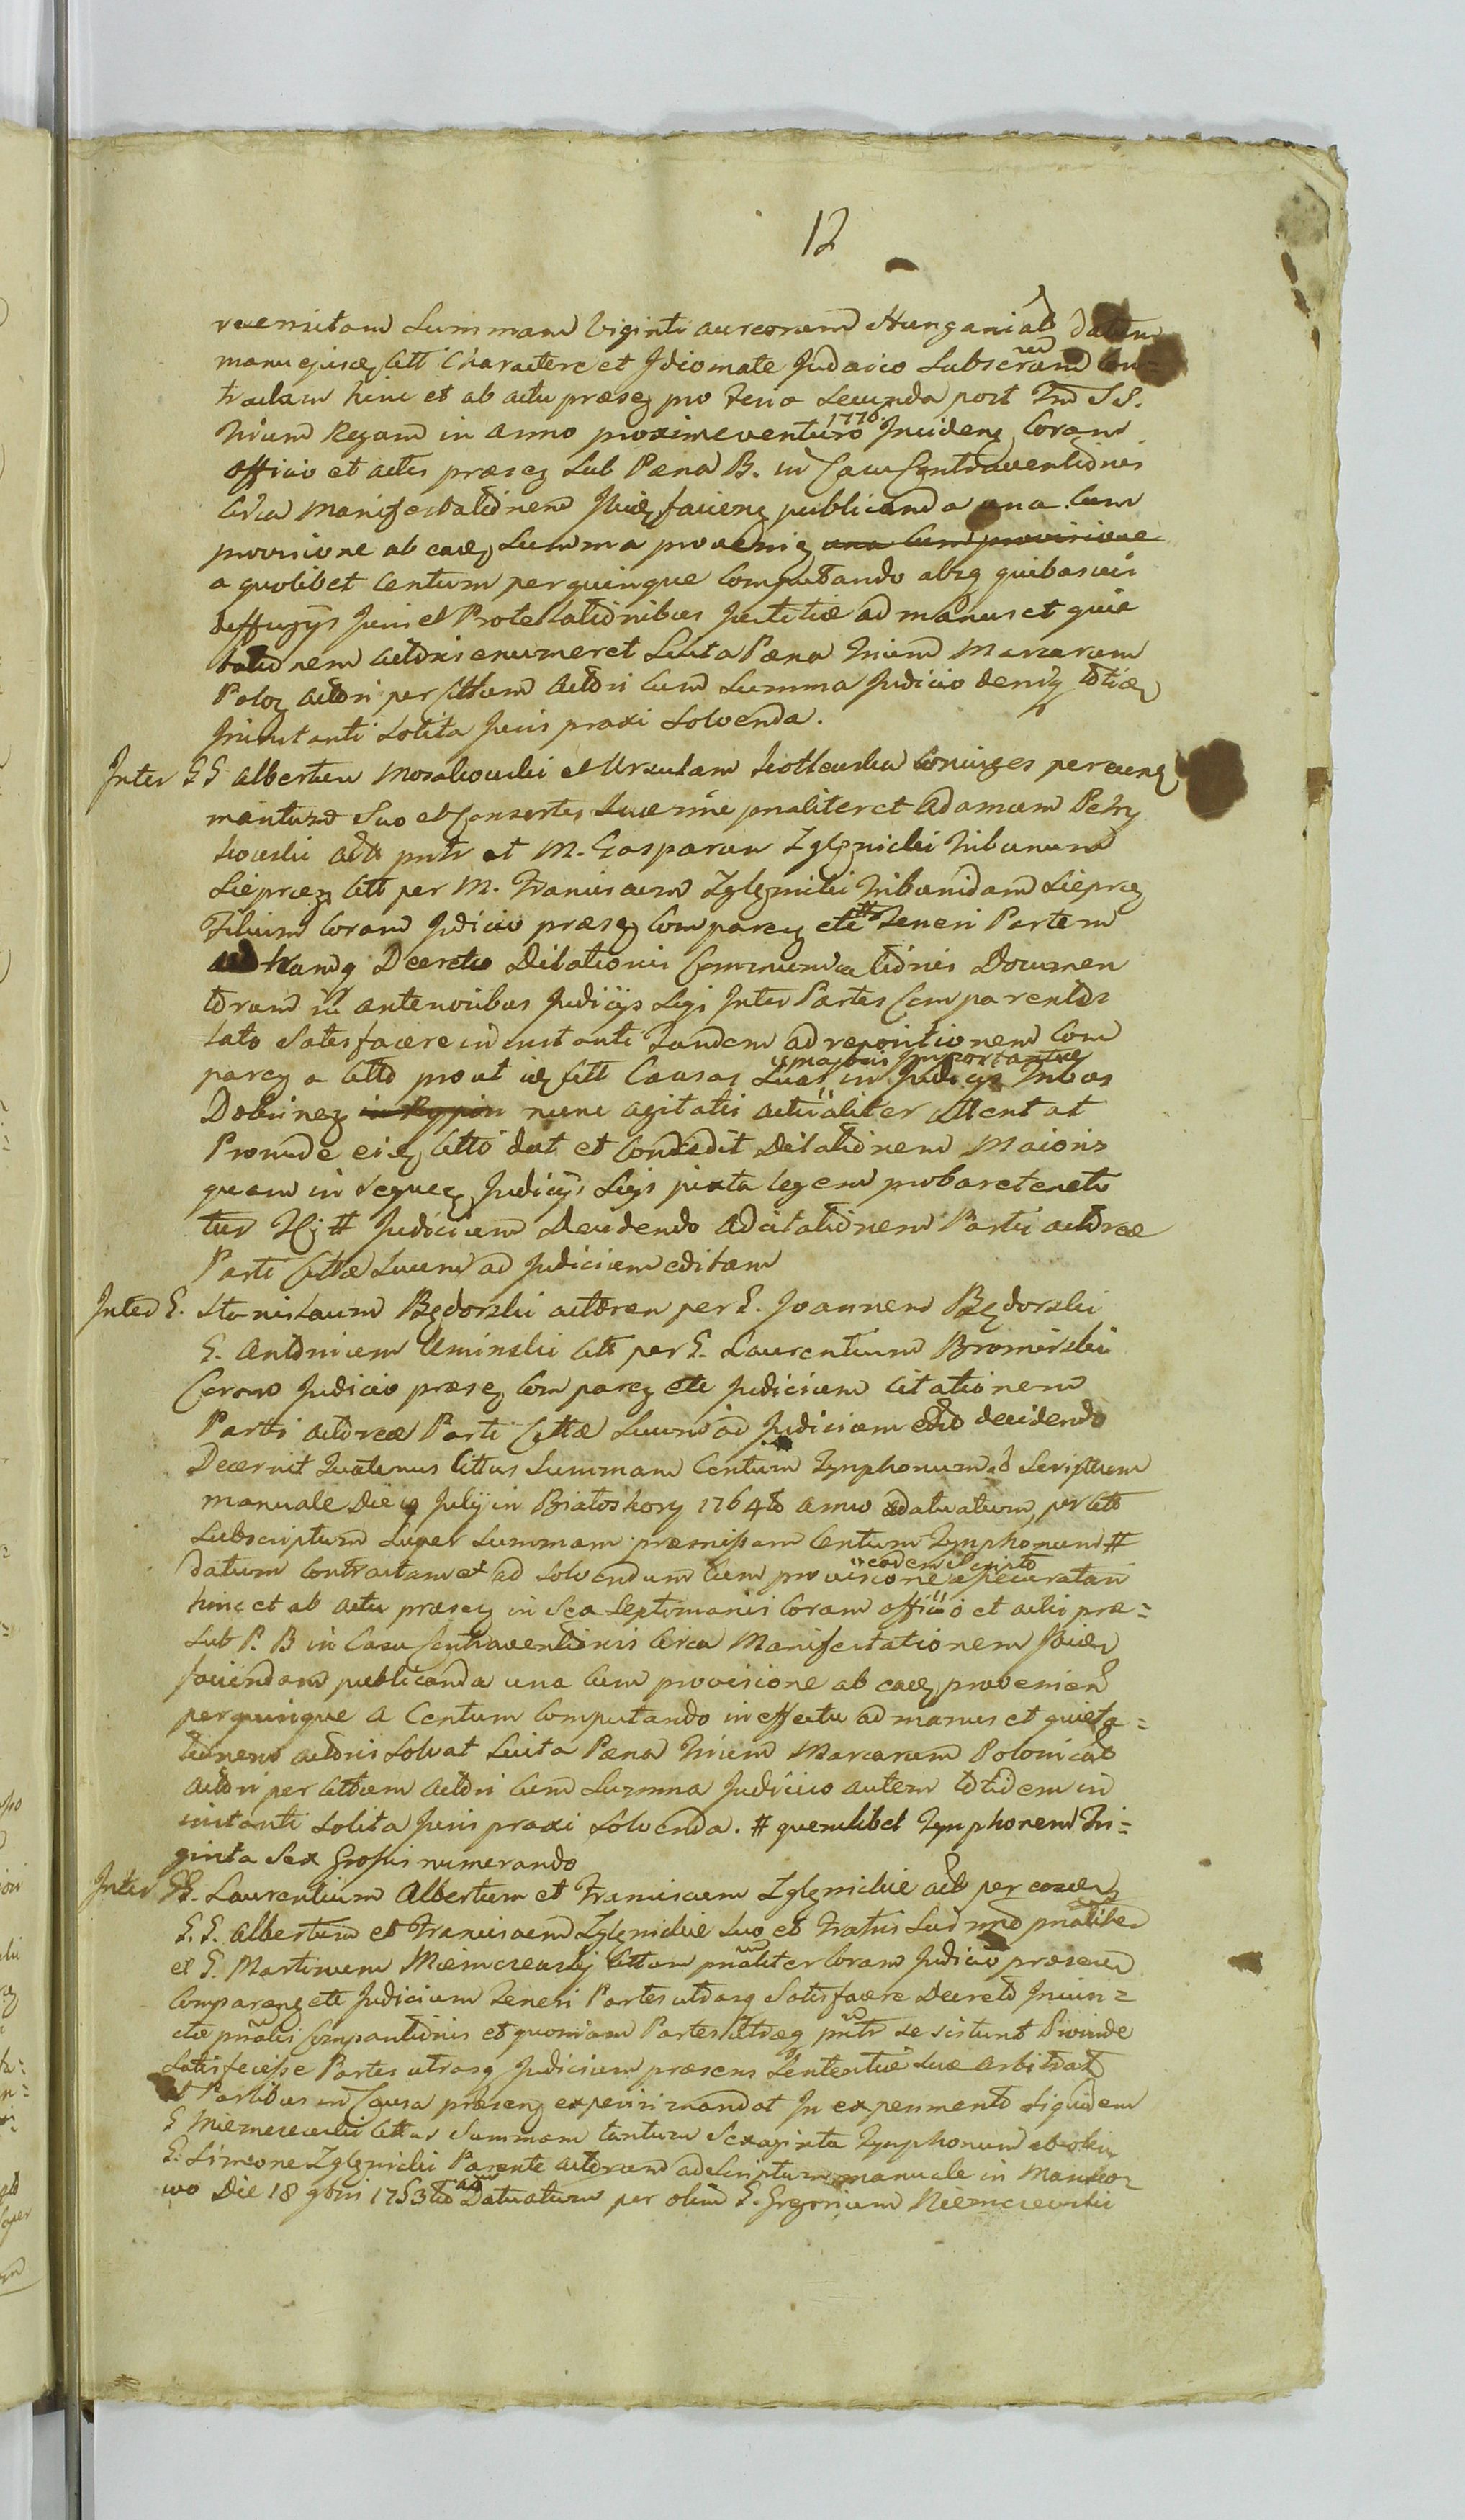 12
recensitam Summam Viginti aureorum Hungarial datam
manu ejusq Citti Charactere et Idiomate Judaico Subscram Con=
tractam hinc et ab actu præsq pro Feria Secunda post Fm SS.
Trium Regum in Anno proxime venturo 1770. Inciden Coram
Officio et actis præsq Sub Pæna B. in Casu Contraventionis
Circa Manifestationem facien publicanda una cum
provisione ab eaq Summa proveni una cum provisione
a quolibet Centum per quinque Computando absq quibusvis
deffugijs Juris et Protestationibus Justitiæ ad manus et quie
tationem actoris enumeret Luita Pæna Trium Marcarum
Polo actori per Cittum Actori cum Summa Judicio deniq totiq
in instanti Solita Juris praxi Solvenda.
Inter GG Albertum Mosakowski et Ursulam Coniuges per eunq
maritum Suo et Consortis Suæ nne pnaliter et Adamum Petry
kowski act pntr et M. Gasparum Zglenicki Tribunum
Sieprcq Citt per M. Franciscum Zglenicki Tribunidam Sieprcq
Filium Coram Judicio præsq Comparcq etc # Teneri Partem
utramq Decreto Dilationis Communicationis Documen
torum in anterioribus Judicijs Legi Inter Partes Comparentes
lato Satisfacere in instanti Tandem ad repositionem Com
parcq a Citto prout iq Citt Causas Suas majoris importantiæ in Judicijs Tribus
Dobrineq in Rypin nunc agitatis actualiter attentat
Proinde eiq Citto dat et Concedit Dilationem Maioris
quam in sequeq Judicijs Legis juxta legem probare tenebi
tur # Judicium Decidendo ad citationem Partis actoreæ
Parti Cittæ Suum ad Judicium editam
Inter G. Stanislaum Będorski actorem per G. Joannem Będorski
G. Antonium Uminski Citt per G. Laurentium Bromirski
Coram Judicio præsq Comparcq etc Judicium Citationem
Partis actoreæ Parti Cittæ Suum ad Judicium edit decidendo
Decernit Quatenus Cittus Summam Centum Tynphonum ad Scriptum
manuale Die Julij in Białoskory 1764to anno datuatum per Citt
Subscriptum Super Summam præmissam Centum Tynphonum #
datum Contractam et ad Solvendum cum provisione eodem Scripto assecuratam
hinc et ab actu præsq in Sex Septimanis Coram officio et actis præ=
Sub P. B in Casu Contraventionis Circa Manifestationem
faciendam publicanda una cum provisione ab eaq provenien
per quinque a Centum Computando in effectu ad manus et quieta=
tionem actoris Solvat Luita Pæna Trium Marcarum Polonical
Actori per Cittum Actori cum Summa Judicio autem totidem in
instanti Solita Juris praxi Solvenda. # quemlibet Tynphonem Tri=
ginta Sex Grossis numerando
Inter GG. Laurentium Albertum et Franciscum Zglenickie act per eosdem
G. G. Albertum et Franciscum Zglenickie Suo et Fratris Sui nne pnaliter
et G. Martinum Niemcrewski Cittum pnaliter Coram Judicio præsen
Comparenq etc Judicium Teneri Partes utrasq Satisfacere Decreto Iniun=
ctæ pnalis Comparitionis et quoniam Partes utræq pntr se sistunt Proinde
Satisfecisse Partes utrasq Judicium præsens Sententiæ Suæ arbitrat
et Partibus in Causa præsenq experiri mandat In experimento Siquidem
G Niemcrewski Cittus Summam tantum Sexaginta Tynphonum ab olim
G. Simone Zglenicki Parente actorum ad Scriptum manuale in Mankor
wo Die 18 9bris 1753tio Datuatum per olim G. Gregorium Niemcrewski